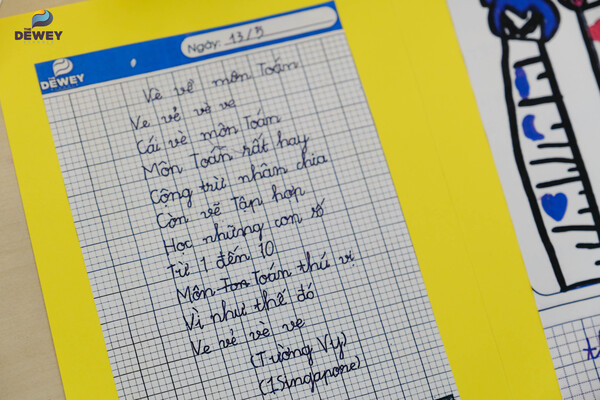 THE DEWEY SCHOOLS
THE DEWEY SCHOOLS
Ngày: 13/5
Vè về môn Toán
Ve vẻ vè ve
Cái vè môn Toán
Môn Toán rất hay
Cộng trừ nhân chia
Còn vẽ Tập hợp
Học những con số
Từ 1 đến 10
Môn Toán thú vị
Vì như thế đó
Ve vẻ vè ve
(Tường Vy)
(1Singapore)